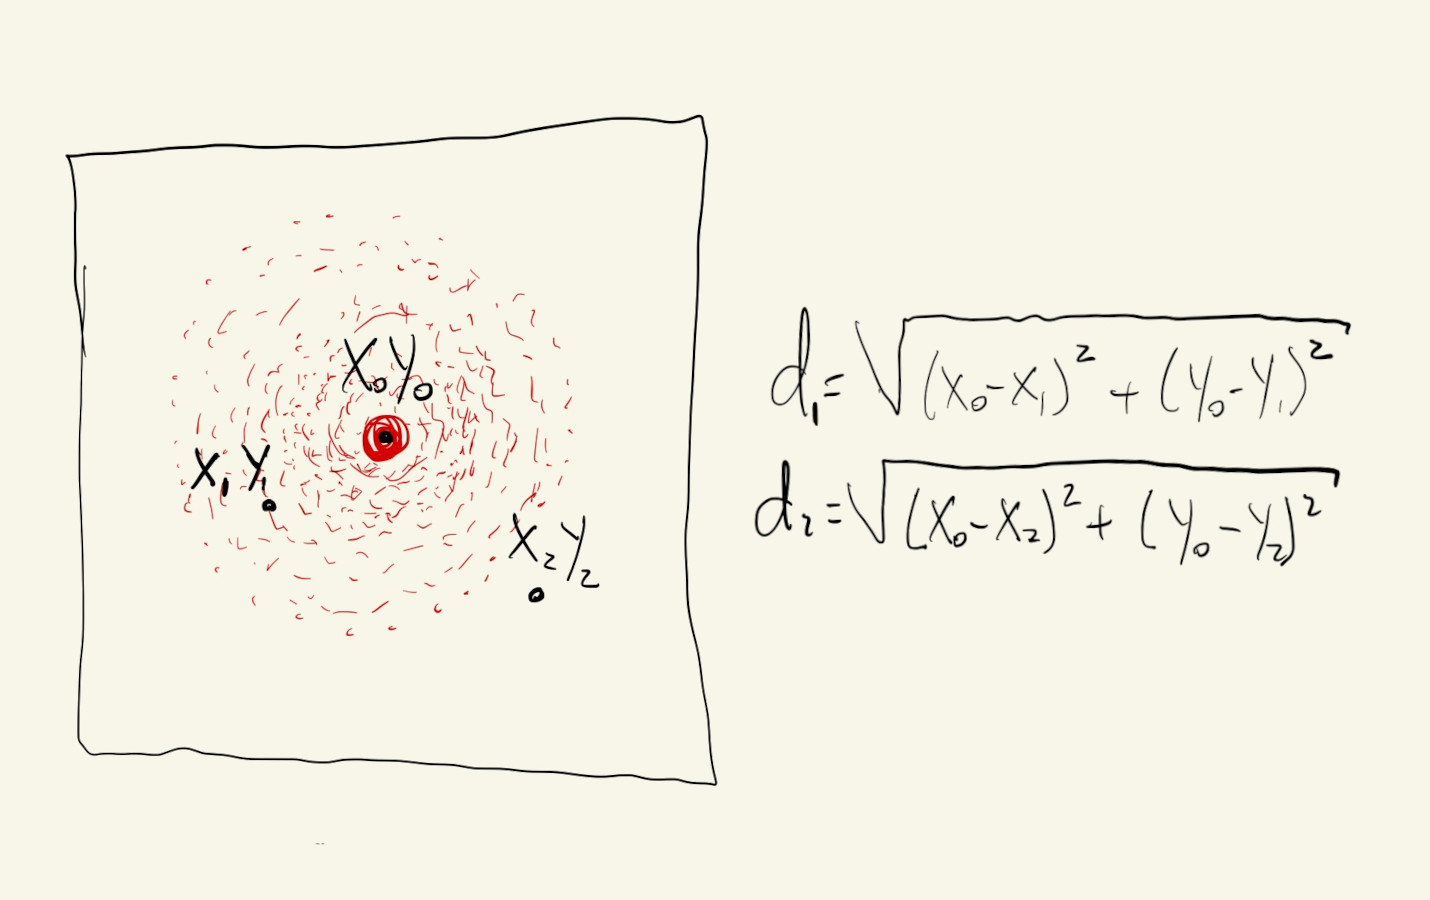 X₀Y₀
X₁Y₁
X₂Y₂
d₁=√(X₀-X₁)² + (Y₀-Y₁)²
d₂=√(X₀-X₂)² + (Y₀-Y₂)²